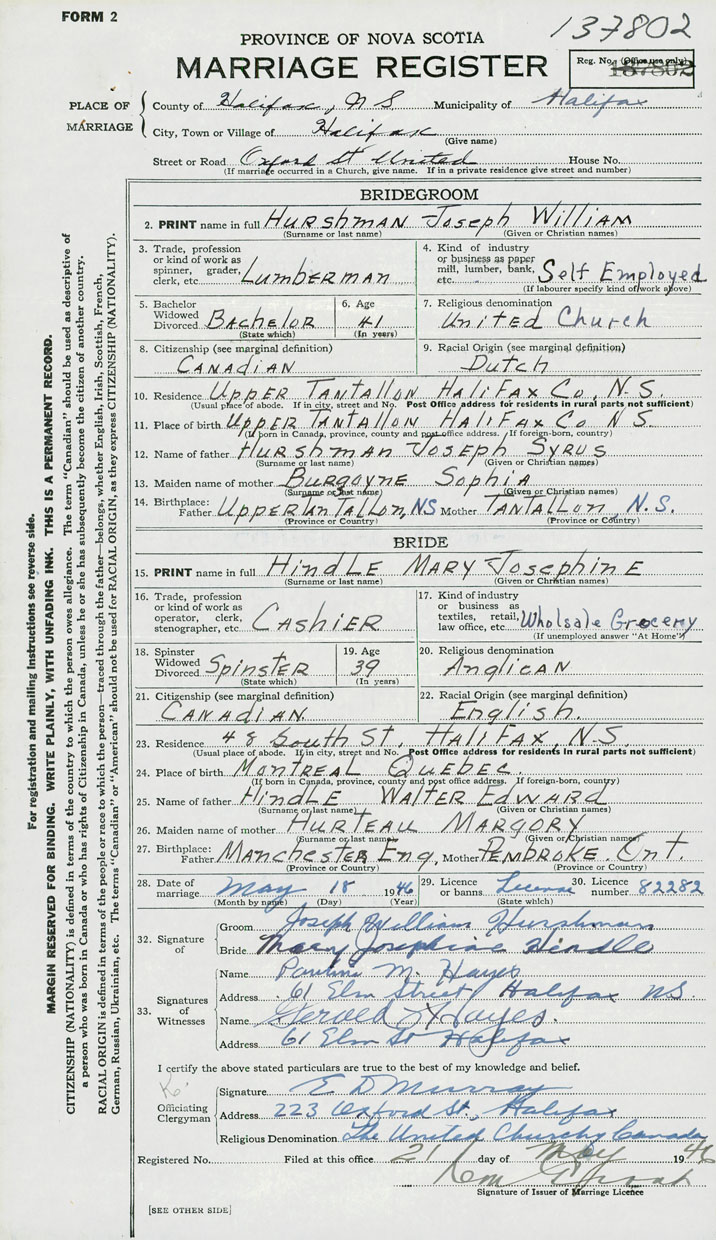 FORM 2
137802
PROVINCE OF NOVA SCOTIA
MARRIAGE REGISTER
Reg. No. (Office use only)
137802
PLACE OF MARRIAGE
County of Halifax, N S Municipality of Halifax
City, Town or Village of Halifax
(Give name)
Street or Road Oxford St United House No.
(If marriage occurred in a Church, give name. If in a private residence give street and number)
BRIDEGROOM
2. PRINT name in full HURSHMAN JOSEPH WILLIAM
(Surname or last name) (Given or Christian names)
3. Trade, profession or kind of work as spinner, grader, clerk, etc. LUMBERMAN
4. Kind of industry or business as paper mill, lumber, bank, etc. Self Employed
(If labourer specify kind of work above)
5. Bachelor Widowed Divorced BACHELOR
(State which)
6. Age 41
(In years)
7. Religious denomination United Church
8. Citizenship (see marginal definition) CANADIAN
9. Racial Origin (see marginal definition) Dutch
10. Residence UPPER TANTALLON HALIFAX CO, N.S.
(Usual place of abode. If in city, street and No. Post Office address for residents in rural parts not sufficient)
11. Place of birth UPPER TANTALLON HALIFAX CO N.S.
(If born in Canada, province, county and post office address. If foreign-born, country)
12. Name of father HURSHMAN JOSEPH SYRUS
(Surname or last name) (Given or Christian names)
13. Maiden name of mother BURGOYNE SOPHIA
(Surname or last name) (Given or Christian names)
14. Birthplace: Father UPPER TANTALLON, NS Mother TANTALLON, N.S.
(Province or Country) (Province or Country)
BRIDE
15. PRINT name in full HINDLE MARY JOSEPHINE
(Surname or last name) (Given or Christian names)
16. Trade, profession or kind of work as operator, clerk, stenographer, etc. CASHIER
17. Kind of industry or business as textiles, retail, law office, etc. Wholsale Grocery
(If unemployed answer "At Home")
18. Spinster Widowed Divorced SPINSTER
(State which)
19. Age 39
(In years)
20. Religious denomination ANGLICAN
21. Citizenship (see marginal definition) CANADIAN
22. Racial Origin (see marginal definition) English.
23. Residence 48 South St, HALIFAX, N.S.
(Usual place of abode. If in city, street and No. Post Office address for residents in rural parts not sufficient)
24. Place of birth MONTREAL QUEBEC.
(If born in Canada, province, county and post office address. If foreign-born, country)
25. Name of father HINDLE WALTER EDWARD
(Surname or last name) (Given or Christian names)
26. Maiden name of mother HURTEAU MARGORY
(Surname or last name) (Given or Christian names)
27. Birthplace: Father MANCHESTER Eng, Mother PEMBROKE. Ont.
(Province or Country) (Province or Country)
28. Date of marriage May 18 1946
(Month by name) (Day) (Year)
29. Licence or banns License
(State which)
30. Licence number 82282
32. Signature of
Groom Joseph William Hurshman
Bride Mary Josephine Hindle
33. Signatures of Witnesses
Name Pauline M. Hayes
Address 61 Elm Street Halifax NS.
Name Gerold Hayes.
Address 61 Elm St Halifax
I certify the above stated particulars are true to the best of my knowledge and belief.
Officiating Clergyman
Signature E D Murray
Address 223 Oxford St, Halifax
Religious Denomination The United Church of Canada
Registered No. Filed at this office 21 day of May 1946
Signature of Issuer of Marriage Licence
[SEE OTHER SIDE]
For registration and mailing instructions see reverse side.
MARGIN RESERVED FOR BINDING. WRITE PLAINLY, WITH UNFADING INK. THIS IS A PERMANENT RECORD.
CITIZENSHIP (NATIONALITY) is defined in terms of the country to which the person owes allegiance. The term "Canadian" should be used as descriptive of
a person who was born in Canada or who has rights of Citizenship in Canada, unless he or she has subsequently become the citizen of another country.
RACIAL ORIGIN is defined in terms of the people or race to which the person—traced through the father—belongs, whether English, Irish, Scottish, French,
German, Russian, Ukrainian, etc. The terms "Canadian" or "American" should not be used for RACIAL ORIGIN, as they express CITIZENSHIP (NATIONALITY).